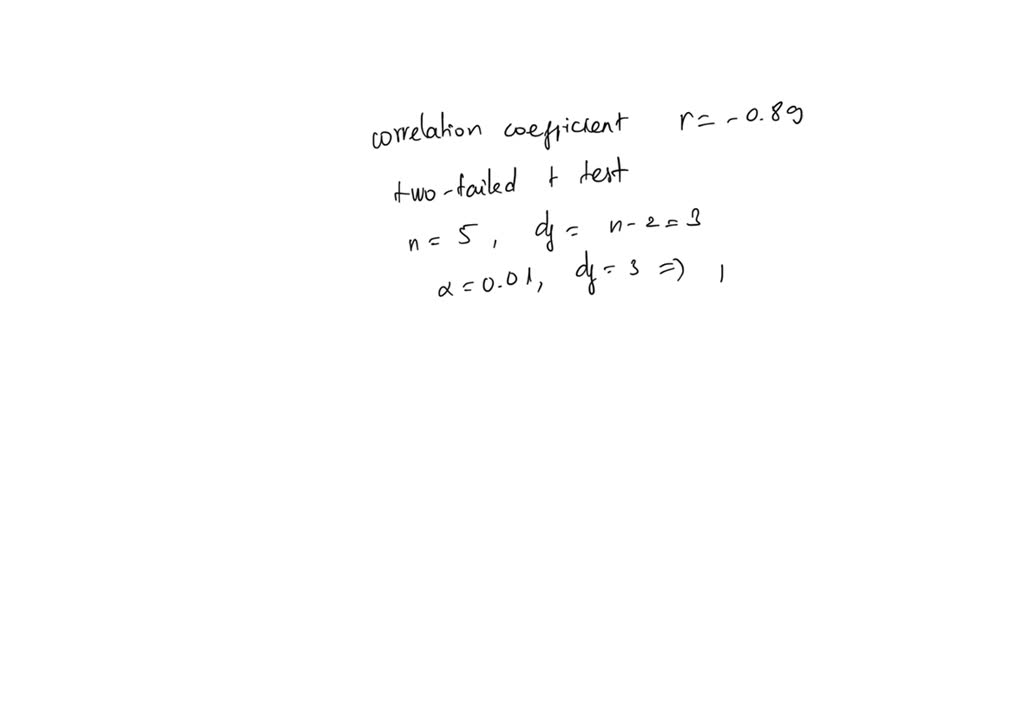 correlation coefficient r = -0.89
two-tailed t test
n = 5, df = n-2 = 3
α = 0.01, df = 3 => |